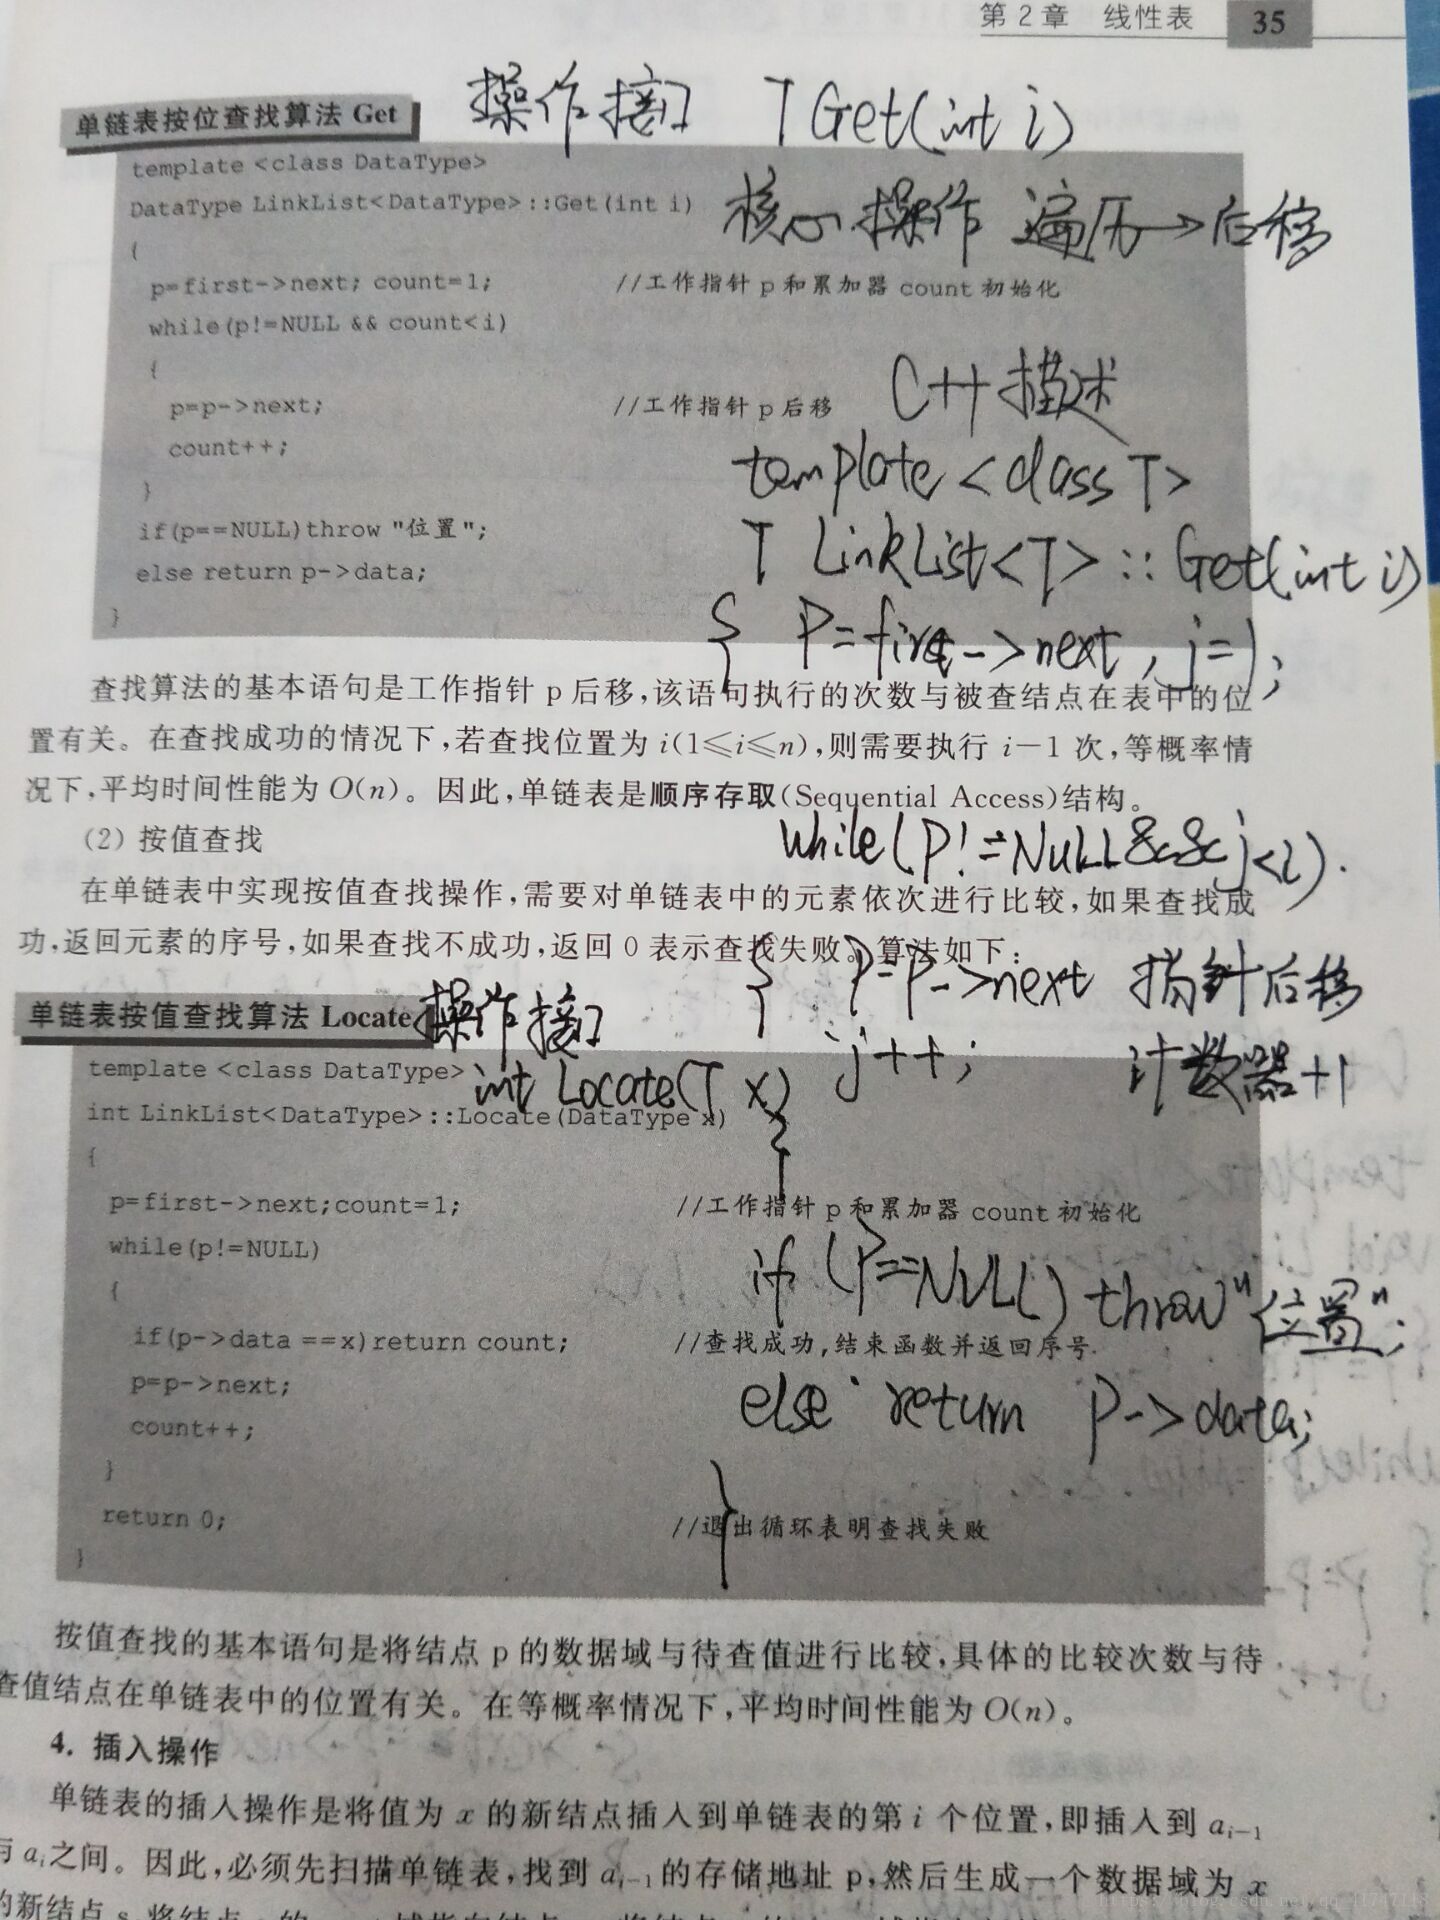 第2章 线性表 35
操作接口 T Get(int i)
单链表按位查找算法 Get
template <class DataType>
DataType LinkList<DataType>::Get(int i)
核心操作 遍历→后移
{
p=first->next; count=1; //工作指针 p 和累加器 count 初始化
while(p!=NULL && count<i)
{
p=p->next; //工作指针 p 后移
count++;
}
if(p==NULL)throw "位置";
else return p->data;
}
C++描述
template <class T>
T LinkList<T>::Get(int i)
{ P=first->next, j=1;
查找算法的基本语句是工作指针 p 后移,该语句执行的次数与被查结点在表中的位
置有关。在查找成功的情况下,若查找位置为 i(1≤i≤n),则需要执行 i-1 次,等概率情
况下,平均时间性能为 O(n)。因此,单链表是顺序存取(Sequential Access)结构。
(2) 按值查找
while(P!=NULL&&j<i).
在单链表中实现按值查找操作,需要对单链表中的元素依次进行比较,如果查找成
功,返回元素的序号,如果查找不成功,返回 0 表示查找失败。算法如下:
{ P=P->next 指针后移
j++; 计数器+1
}
单链表按值查找算法 Locate
操作接口
int Locate(T x)
template <class DataType>
int LinkList<DataType>::Locate(DataType x)
{
p=first->next;count=1; //工作指针 p 和累加器 count 初始化
while(p!=NULL)
{
if(p->data ==x)return count; //查找成功,结束函数并返回序号
p=p->next;
count++;
}
return 0; //退出循环表明查找失败
}
if (P==NULL) throw "位置";
else return P->data;
}
按值查找的基本语句是将结点 p 的数据域与待查值进行比较,具体的比较次数与待
查值结点在单链表中的位置有关。在等概率情况下,平均时间性能为 O(n)。
4. 插入操作
单链表的插入操作是将值为 x 的新结点插入到单链表的第 i 个位置,即插入到 ai-1
与 ai之间。因此,必须先扫描单链表,找到 ai-1 的存储地址 p,然后生成一个数据域为 x
的新结点 s